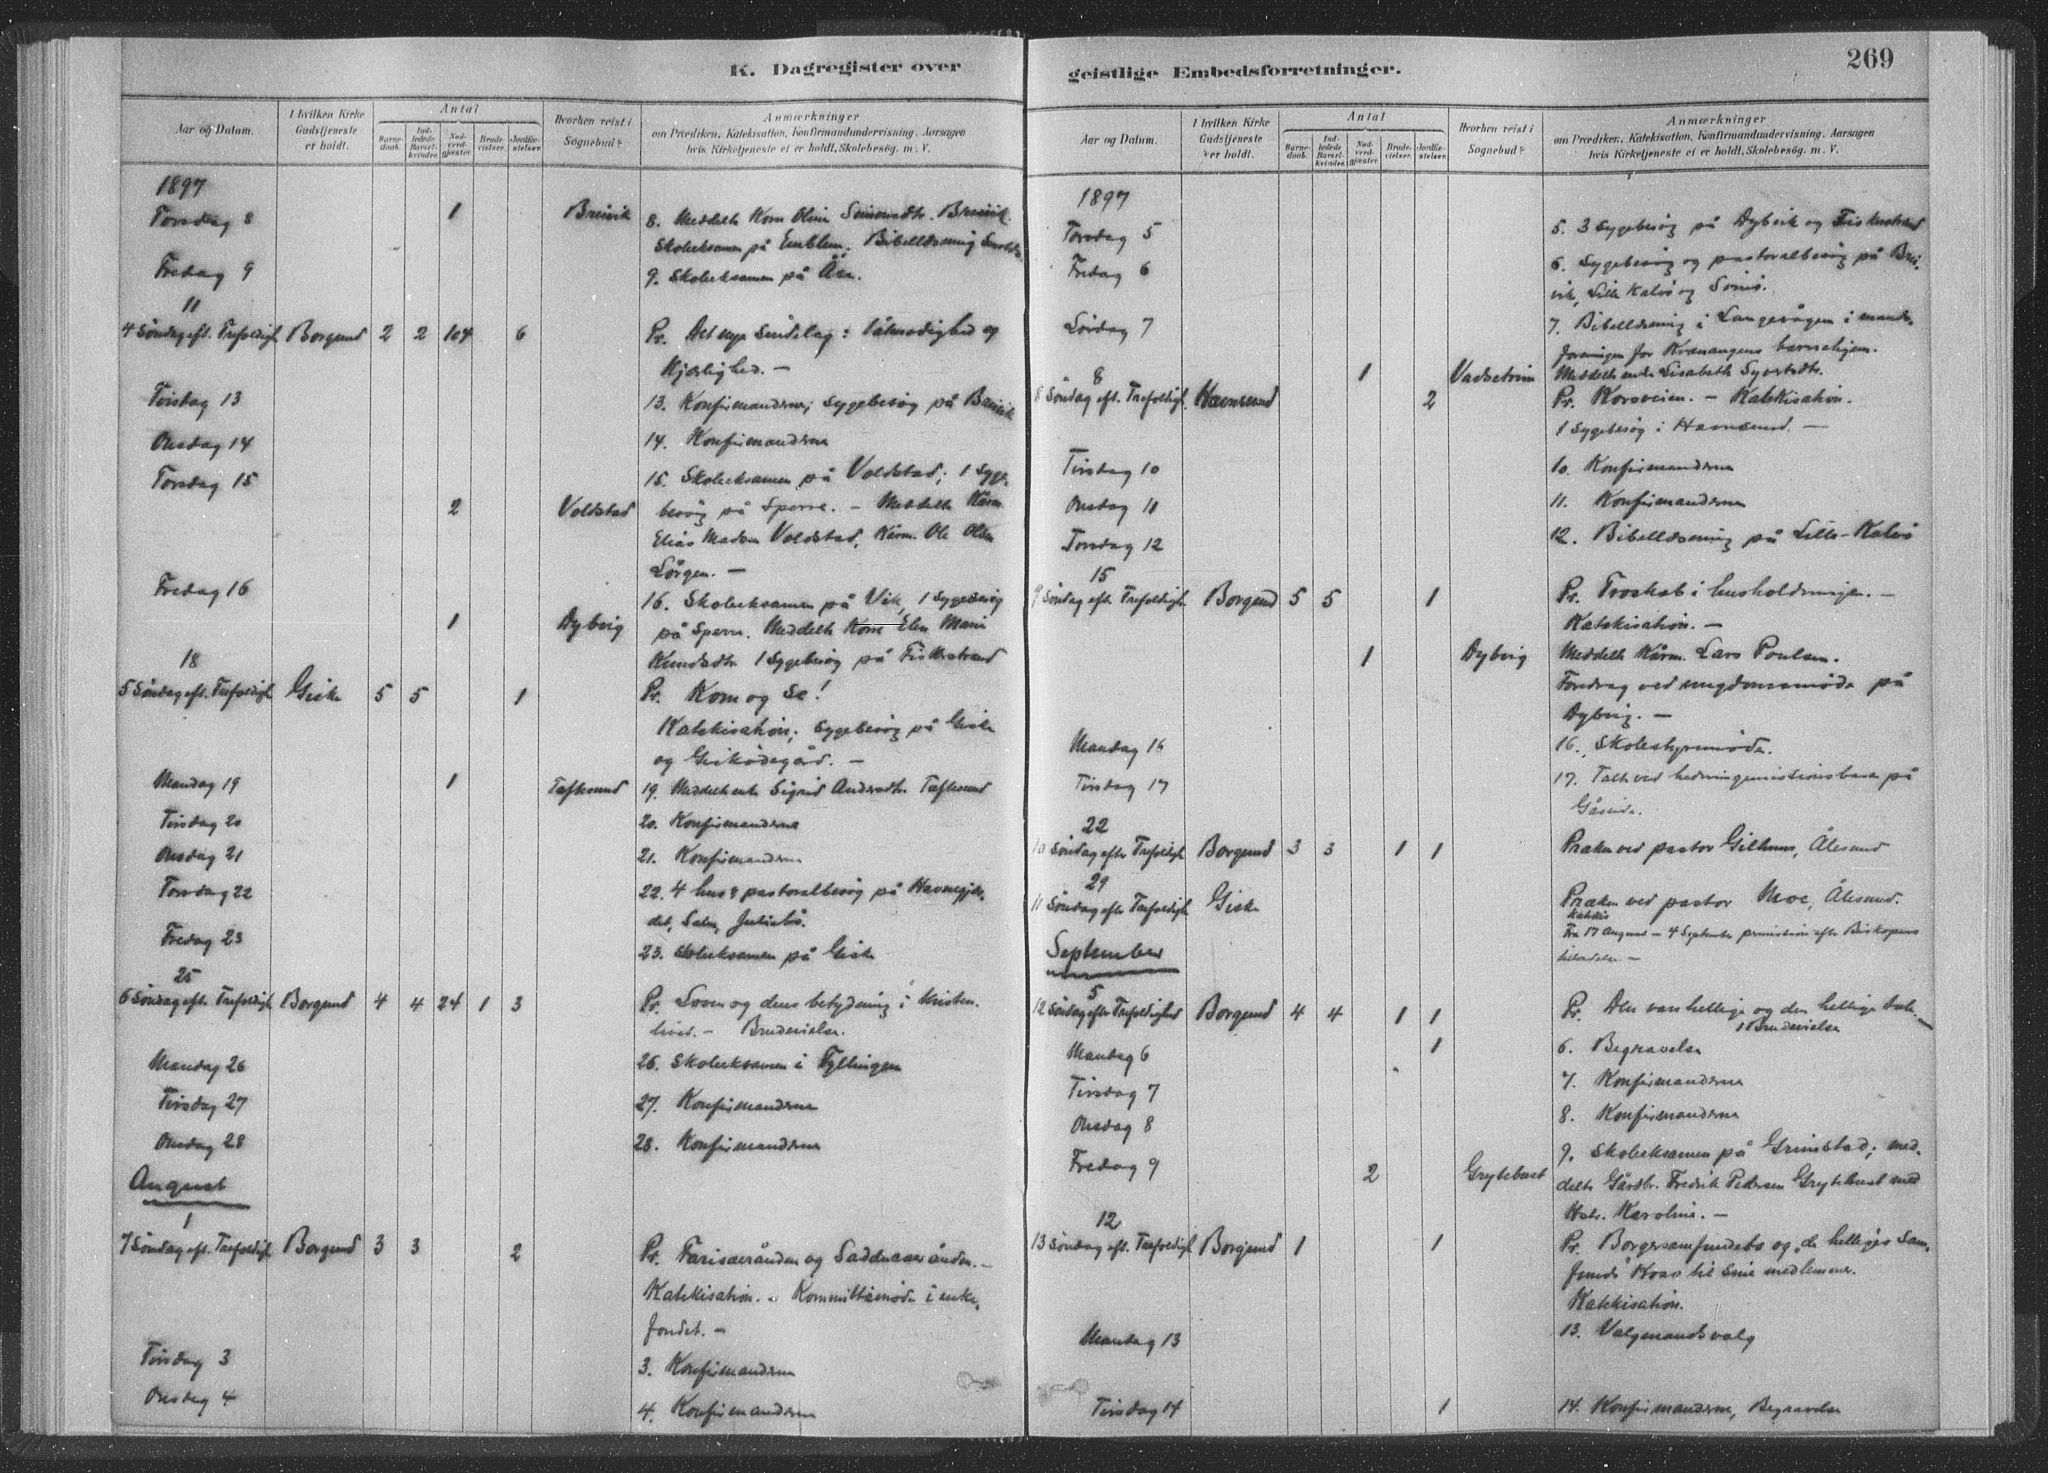 K. Dagregister over
Aar og Datum.
I hvilken Kirke Gudstjeneste er holdt.
Antal
Barnedaab.
Indledede Barselkvinder.
Nadverdgjæster.
Brudevielser.
Jordfæstelser.
Hvorhen reist i Sognebud?
Anmærkninger
om Prædiken, Katekisation, Konfirmandundervisning, Aarsagen
hvis Kirketjeneste ei er holdt, Skolebesøg. m. V.
1897
Torsdag 8 1 Breivik 8. Meddelt Kone Oline Simonsdtr. Breivik.
Skoleeksamen på Emblem. Bibellæsning
Fredag 9 9. Skoleeksamen på
11
4 Søndag eft. Trefoldigh. Borgund 2 2 104 6 Pr. Det nye Sindelag: Tålmodighed og
Kjærlighed. —
Tirsdag 13 13. Konfirmanderne; Sygebesøg på Breivik
Onsdag 14 14. Konfirmanderne
Torsdag 15 15. Skoleeksamen på Voldstad; 1 Syge-
2 Voldstad besøg på Sperre. — Meddelt Kårm.
Elias Madsen Voldstad, Kårm. Ole Olsen
Lørgen. —
Fredag 16 16. Skoleeksamen på Vik, 1 Sygebesøg
1 Dybvig på Sperre. Meddelt Kone Elen Marie
Knudsdtr. 1 Sygebesøg på Fiskestrand
18
5 Søndag eft. Trefoldigh. Giske 5 5 1 Pr. Kom og Se!
Katekisation; Sygebesøg på Giske
og Giskødegård. —
Mandag 19 1 Taftesund 19. Meddelt enke Sigrid Andersdtr. Taftesund
Tirsdag 20 20. Konfirmanderne
Onsdag 21 21. Konfirmanderne
Torsdag 22 22. 4 hus & pastoralbesøg på Havnegjær-
det, Salen, Juliebø.
Fredag 23 23. Skoleeksamen på Giske
25
6 Søndag efter Trefoldigh. Borgund 4 4 24 1 3 Pr. Loven og dens betydning i Kristen-
livet. — Brudevielse.
Mandag 26 26. Skoleeksamen i Fyllingen
Tirsdag 27 27. Konfirmanderne
Onsdag 28 28. Konfirmanderne
August
1
7 Søndag eft. Trefoldigh. Borgund 3 3 2 Pr. Farisæerånden og Sadducæerånden. —
Katekisation. — Kommittémøde i enke-
fondet. —
Tirsdag 3 3. Konfirmanderne
Onsdag 4 4. Konfirmanderne
geistlige Embedsforretninger.
269
Aar og Datum.
I hvilken Kirke Gudstjeneste er holdt.
Antal
Barnedaab.
Indledede Barselkvinder.
Nadverdgjæster.
Brudevielser.
Jordfæstelser.
Hvorhen reist i Sognebud?
Anmærkninger
om Prædiken, Katekisation, Konfirmandundervisning, Aarsagen
hvis Kirketjeneste ei er holdt, Skolebesøg. m. V.
1897
Torsdag 5 5. 3 Sygebesøg på Dybvik og Fiskestrand
Fredag 6 6. Sygebesøg og pastoralbesøg på Brei-
vik, Lille Kalvø og
Lørdag 7 7. Bibellæsning i Langevågen i mands-
foreningen for Kvænangens barnehjem.
1 Vadsetvin Meddelt enke Lisabeth Syvertsdtr.
8
8 Søndag eft. Trefoldigh. Havnsund 2 Pr. Korsveien. — Katekisation.
1 Sygebesøg i Havnsund. —
Tirsdag 10 10. Konfirmanderne
Onsdag 11 11. Konfirmanderne
Torsdag 12 12. Bibellæsning på Lille-Kalvø
15
9 Søndag eft. Trefoldigh. Borgund 5 5 1 Pr. Troskab i husholdningen. —
Katekisation. —
1 Dybvig Meddelt Kårm. Lars Poulsen.
Foredrag ved ungdomsmøde på
Dybvig. —
Mandag 16 16. Skolestyremøde.
Tirsdag 17 17. Talt ved hedningemissionsbasar på
Gåseide.
22
10 Søndag efter Trefoldigh. Borgund 3 3 1 1 Præken ved pastor Gilhuus, Ålesund
29
11 Søndag efter Trefoldigh. Giske Præken ved pastor Moe, Ålesund.
Katekis
Fra 17 August — 4 September permission efter Biskopens
tilladelse —
September
5
12 Søndag efter Trefoldighed Borgund 4 4 1 1 Pr. Den vanhellige og den hellige tale. —
1 Brudevielse
Mandag 6 1 6. Begravelse
Tirsdag 7 7. Konfirmanderne
Onsdag 8 8. Konfirmanderne
Fredag 9 9. Skoleeksamen på Grimstad; med-
2 Grytebust delt Gårdbr. Fredrik Pedersen Grytebust med
Hstr. Karoline. —
12
13 Søndag eft. Trefoldigh. Borgund 1 1 Pr. Borgersamfundets og „de helliges Sam-
funds" Krav til sine medlemmer.
Katekisation.
Mandag 13 13. Valgmandsvalg
Tirsdag 14 1 14. Konfirmanderne, Begravelse